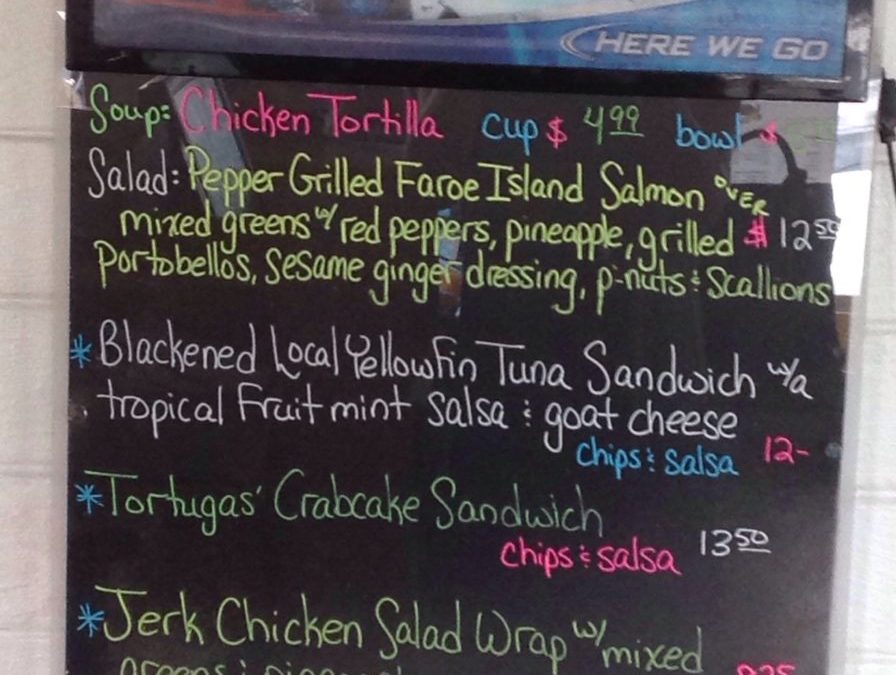 HERE WE GO
Soup: Chicken Tortilla cup $ 4.99 bowl $
Salad: Pepper Grilled Faroe Island Salmon OVER
mixed greens w/ red peppers, pineapple, grilled $ 12.50
Portobellos, Sesame ginger dressing, p-nuts & Scallions
* Blackened Local Yellowfin Tuna Sandwich w/a
tropical Fruit mint salsa & goat cheese
chips & salsa 12-
* Tortugas' Crabcake Sandwich
chips & salsa 13.50
* Jerk Chicken Salad Wrap w/ mixed
greens &